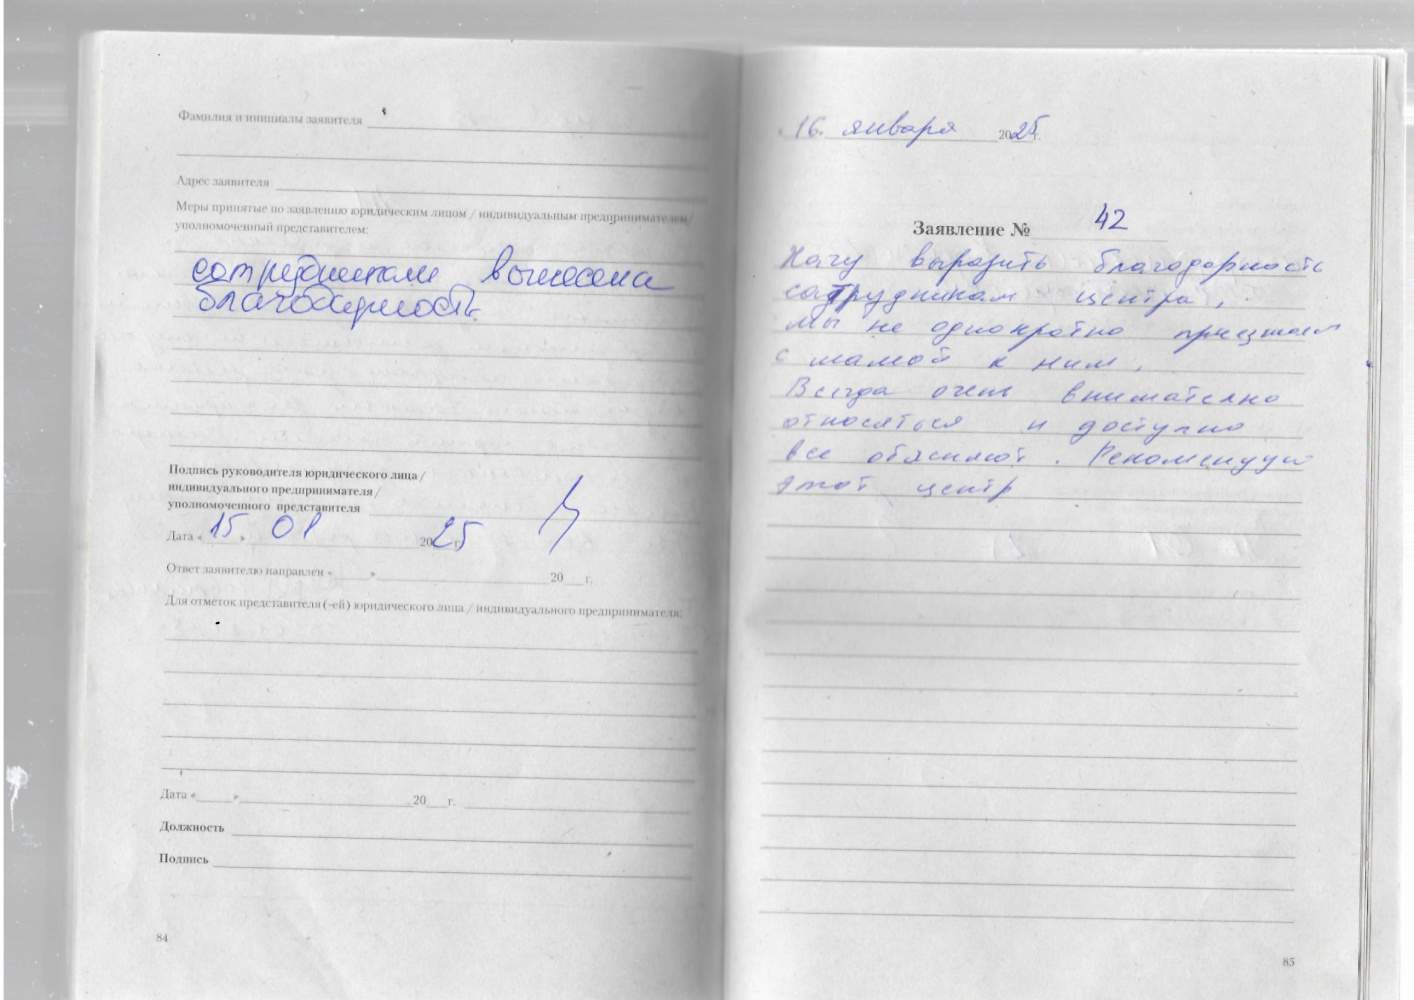 Фамилия и инициалы заявителя
Адрес заявителя
Меры принятые по заявлению юридическим лицом / индивидуальным предпринимателем/
уполномоченный представителем:
сотрудникам вынесена
благодарность.
Подпись руководителя юридического лица /
индивидуального предпринимателя/
уполномоченного представителя
Дата «15» 01 2025 г.
Ответ заявителю направлен « » 20 г.
Для отметок представителя (-ей) юридического лица / индивидуального предпринимателя:
Дата « » 20 г.
Должность
Подпись
84
16. января 2025 г.
Заявление № 42
Хочу выразить благодарность
сотрудникам центра,
мы не однократно приезжаем
с мамой к ним.
Всегда очень внимателно
относяться и доступно
все обясняют. Рекомендую
этот центр
85